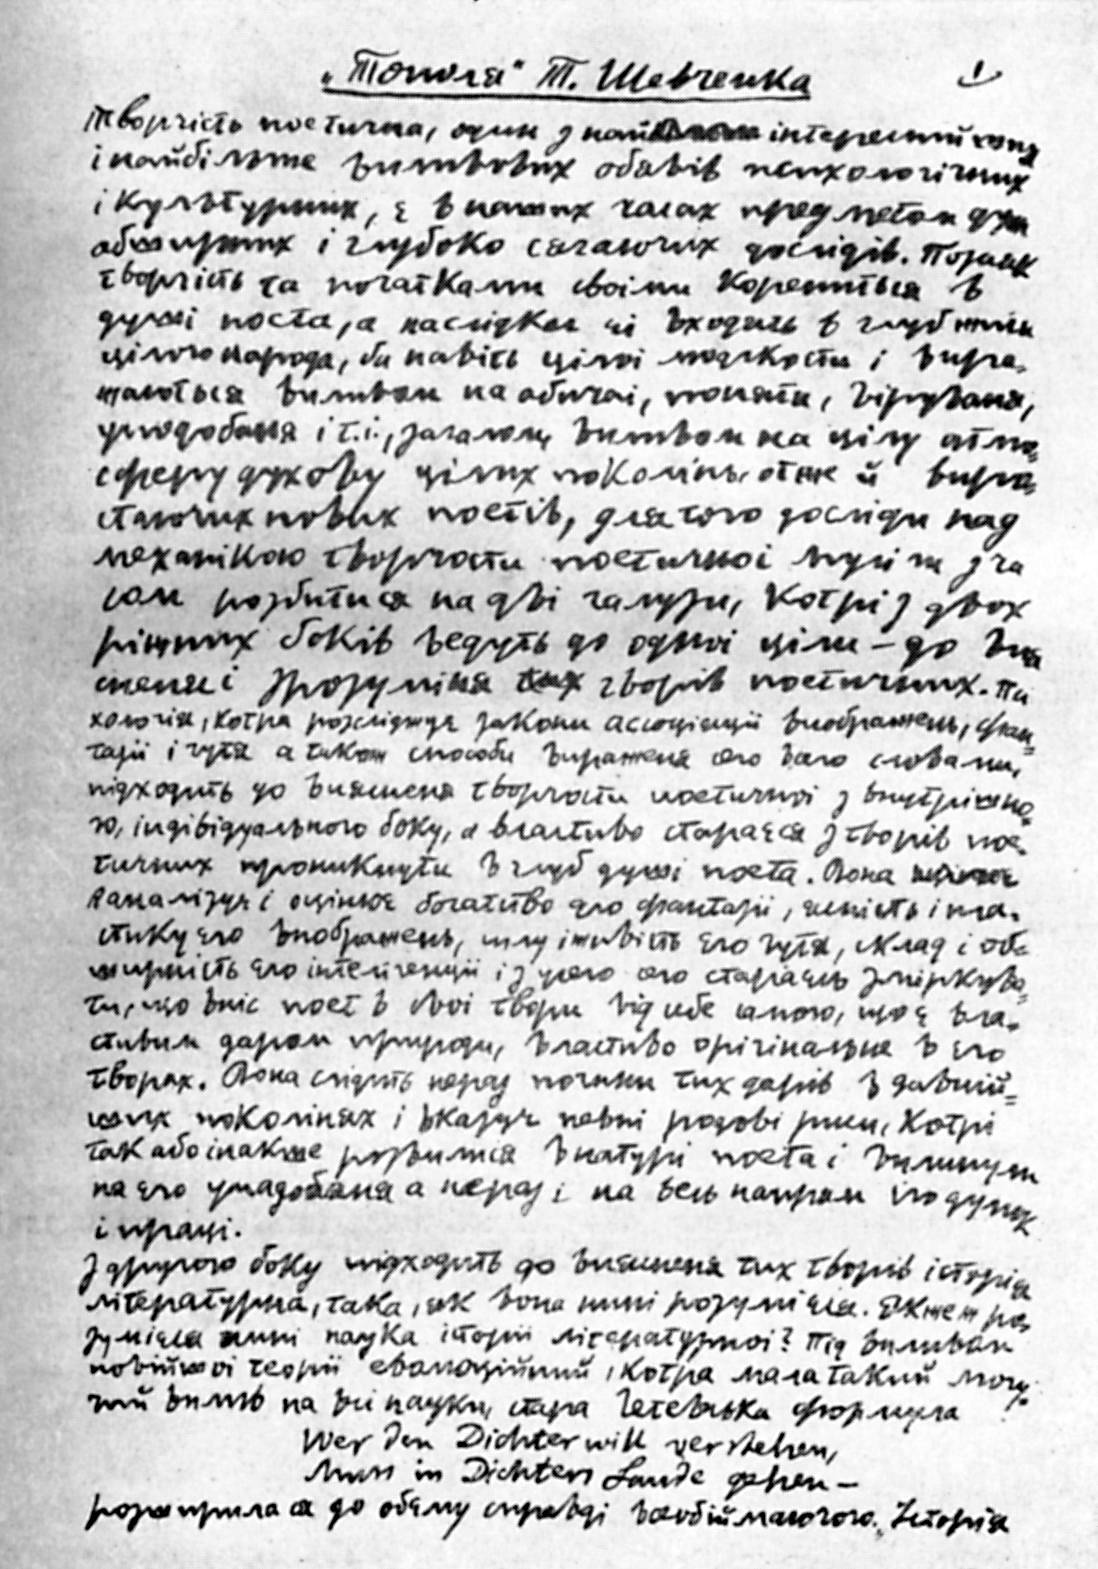 „Тополя" Т. Шевченка
1
Творчість поетична, один з най інтереснійших
і найбільше впливових обявів психологічних
і культурних, є в наших часах предметом дуже
обширних і глубоко сягаючих дослідів. Позаяк
творчість та початками своіми корениться в
душі поета, а наслідками єі входить в глубінь
цілого народа, ба навіть цілоі людскости і вира-
жаються впливом на обичаі, понятя, віруваня,
уподобаня і т. і., загалом впливом на цілу атмо-
сферу духову цілих поколінь, отже й вирa-
стаючих нових поетів, для того досліди над
механікою творчости поетичноі мусіли з ча
сом розбитися на дві галузи, котрі з двох
ріжних боків ведуть до одноі ціли – до вия
сненя і зрозуміня творів поетичних. Пси
хологія, котра розсліджує закони ассоціяціі вображень, фан-
тазіі і чутя а також способи вираженя єго словами,
підходить до виясненя творчости поетичноі з внутрішно-
го, індівідуального боку, а властиво стараєся з творів пое-
тичних проникнути в глуб душі поета. Вона
аналізує і оцінює богатство єго фантазіі, ясність і пла-
стику єго вображень, силу і живість єго чутя, склад і об-
ширність єго інтелігенціі і з усего єго стараєсь зміркува-
ти, що вніс поет в своі твори від себе самого, що є вла-
стивим даром природи, властиво орігінальне в єго
творах. Вона слідить нераз початки тих дарів в давній-
ших поколінях і вказує певні родові риси, котрі
так або інакше розвилися в натурі поета і вплинули
на єго уподобаня а нераз і на весь напрям єго думок
і праці.
З другого боку підходить до виясненя тих творів історія
літературна, така, як вона нині розумієся. Як же ж ро-
зумієся нині наука історіі літературноі? Під впливом
новійшоі теоріі еволюційноі, котра мала такий могу-
чий вплив на всі науки, стара Ґетевська формула
Wer den Dichter will verstehen,
Muss in Dichters Lande gehen –
розширилася до обєму справді всеобіймаючого. „Історія